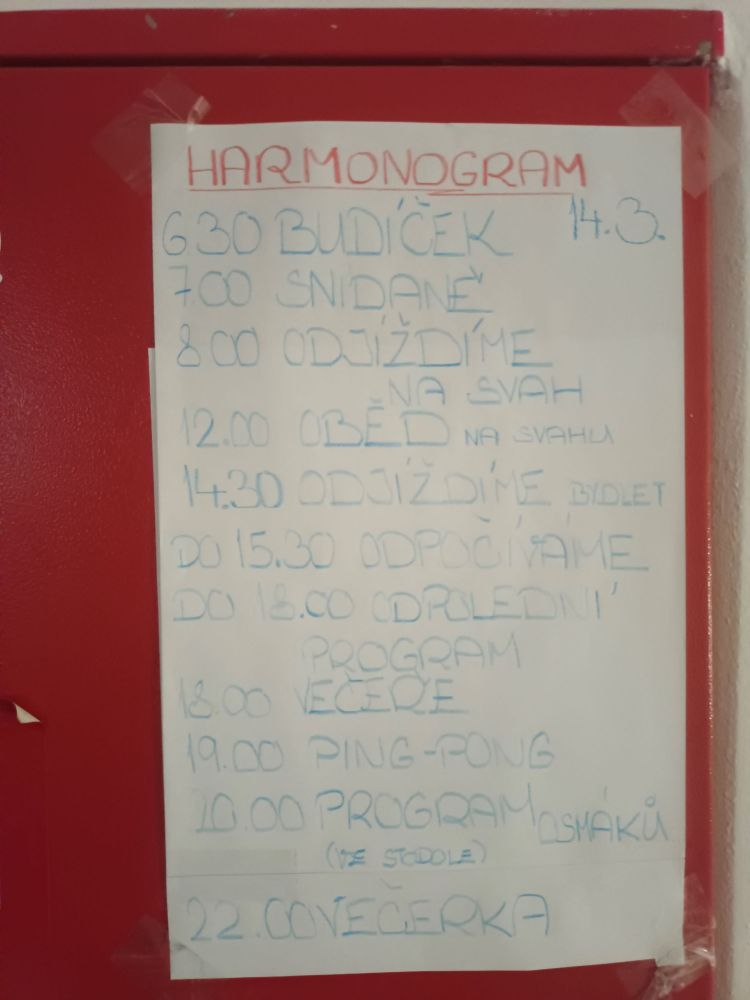 HARMONOGRAM
630 BUDÍČEK 14.3.
7.00 SNIDANĚ
8 00 ODJÍŽDÍME
NA SVAH
12.00 OBĚD NA SVAHU
14.30 ODJÍŽDÍME BYDLET
DO 15.30 ODPOČÍVÁME
DO 18.00 ODPOLEDNÍ
PROGRAM
18.00 VEČEŘE
19.00 PING-PONG
20.00 PROGRAM OSMÁKŮ
(VE STODOLE)
22.00 VEČERKA